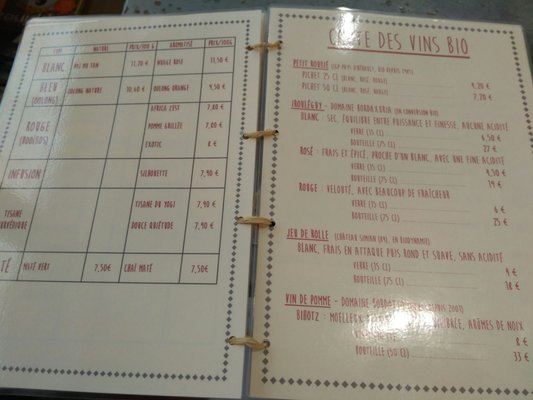 NATURE PRIX/100 G AROMATISÉ PRIX/100G
BLANC PAI MU TAN 11,70 € NUAGE ROSE 13,50 €
BLEU (OOLONG) OOLONG NATURE 10,60 € OOLONG ORANGE 9,50 €
ROUGE (ROOÏBOS) AFRICA ZEST 7,80 €
POMME GRILLÉE 7,80 €
EXOTIC 8 €
INFUSION SILHOUETTE 7,90 €
TISANE TISANE DU YOGI 7,90 €
DOUCE QUIÉTUDE 7,90 €
MATÉ VERT 7,50€ CHAÏ MATÉ 7,50€
CARTE DES VINS BIO
PETIT ROUBIÉ
PICHET 25 CL (BLANC, ROSÉ, ROUGE) 4,20 €
PICHET 50 CL (BLANC, ROSÉ, ROUGE) 7,20 €
IROULÉGUY - DOMAINE BORDAXURIA (EN CONVERSION BIO)
BLANC : SEC, ÉQUILIBRE ENTRE PUISSANCE ET FINESSE, AUCUNE ACIDITÉ
VERRE (15 CL) 6,50 €
BOUTEILLE (75 CL) 27 €
ROSÉ : FRAIS ET ÉPICÉ, PROCHE D'UN BLANC, AVEC UNE FINE ACIDITÉ
VERRE (15 CL) 4,50 €
BOUTEILLE (75 CL) 19 €
ROUGE : VELOUTÉ, AVEC BEAUCOUP DE FRAÎCHEUR
VERRE (15 CL) 6 €
BOUTEILLE (75 CL) 25 €
JEU DE ROLLE (CHÂTEAU SIMIAN (84), EN BIODYNAMIE)
BLANC, FRAIS EN ATTAQUE PUIS ROND ET SUAVE, SANS ACIDITÉ
VERRE (15 CL) 9 €
BOUTEILLE (75 CL) 38 €
VIN DE POMME - DOMAINE DEPUIS 2007)
BIHOTZ : MOELLEUX ARÔMES DE NOIX
8 €
BOUTEILLE (50 CL) 33 €